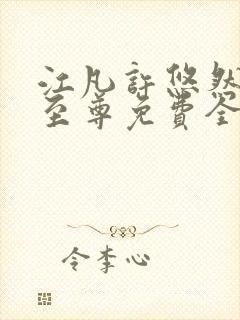 江凡許悠然
至尊免費全
令李心